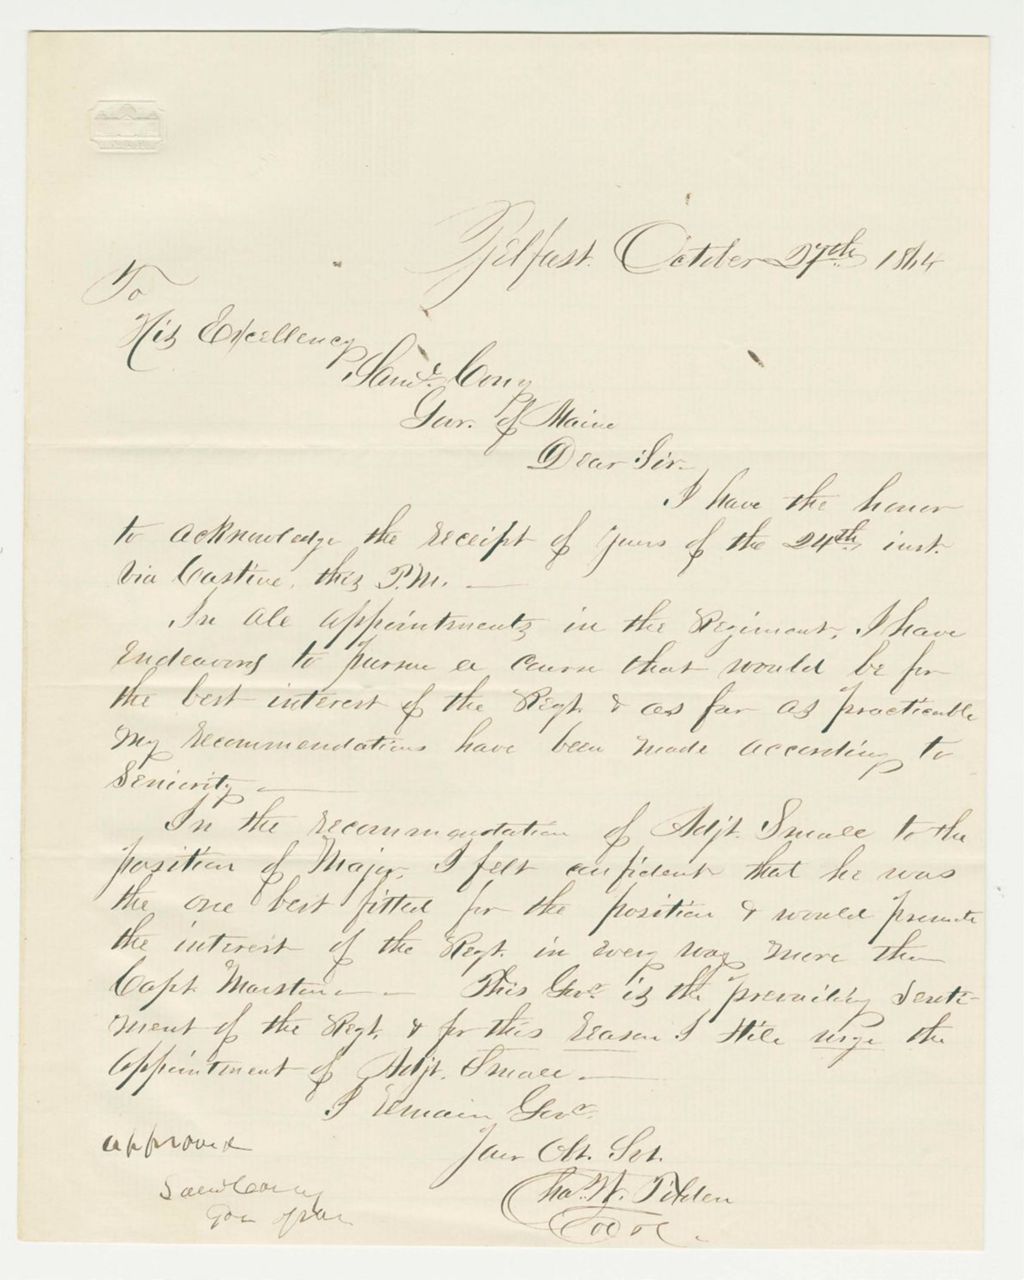 Belfast. October 27th 1864
To
His Excellency
Saml. Cony
Gov. of Maine
Dear Sir
I have the honor
to acknowledge the receipt of yours of the 24th inst.
Via Castine, this P.M. —
In all appointments in the Regiment, I have
endeavored to pursue a course that would be for
the best interest of the Regt. & as far as practicable
my recommendations have been made according to
Seniority —
In the recommendation of Adjt. Small to the
position of Major, I felt confident that he was
the one best fitted for the position & would promote
the interest of the Regt. in every way more than
Capt. Marston — This Gov. is the prevailing senti-
ment of the Regt. & for this reason I still urge the
appointment of Adjt. Small. —
I remain Gov.
Your Obt. Svt.
Chas. W. Tilden
approved
Saml Cony
Gov of